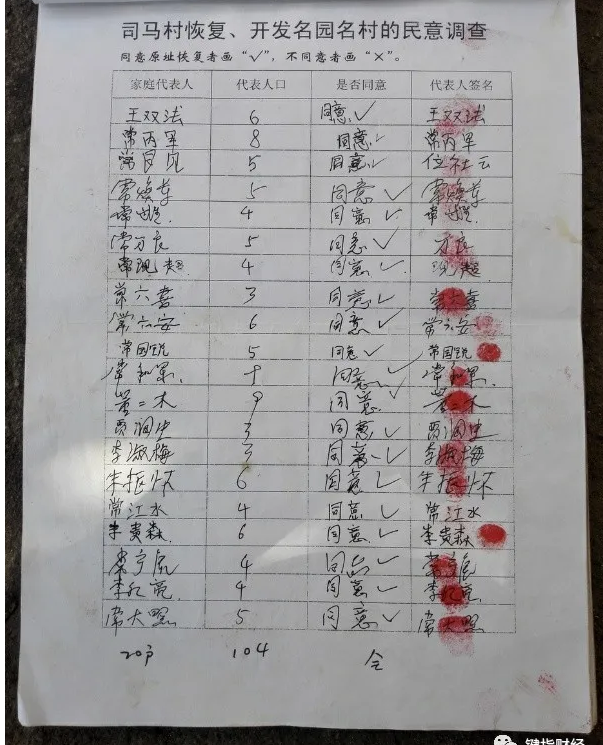 司马村恢复、开发名园名村的民意调查
同意原址恢复者画“√”，不同意者画“×”。
家庭代表人 代表人口 是否同意 代表人签名
王双法 6 同意√ 王双法
常丙军 8 同意√ 常丙军
常 5 同意√
常焕 5 同意√ 常焕
常 4 同意√ 常
常万良 5 同意√ 万良
常现超 4 同意√ 现超
常六喜 3 同意√ 常六喜
常六安 6 同意√ 常六安
常国锐 5 同意√ 常国锐
常和 同意√ 常和
二木 9 同意√ 二木
贾润生 3 同意√ 贾润生
李淑梅 3 同意√ 李淑梅
朱振怀 6 同意√ 朱振怀
常江水 4 同意√ 常江水
李贵森 6 同意√ 李贵森
常 4 同意√ 常
李红亮 4 同意√ 李红亮
常大照 5 同意√ 常大照
20户 104 全
键指财经